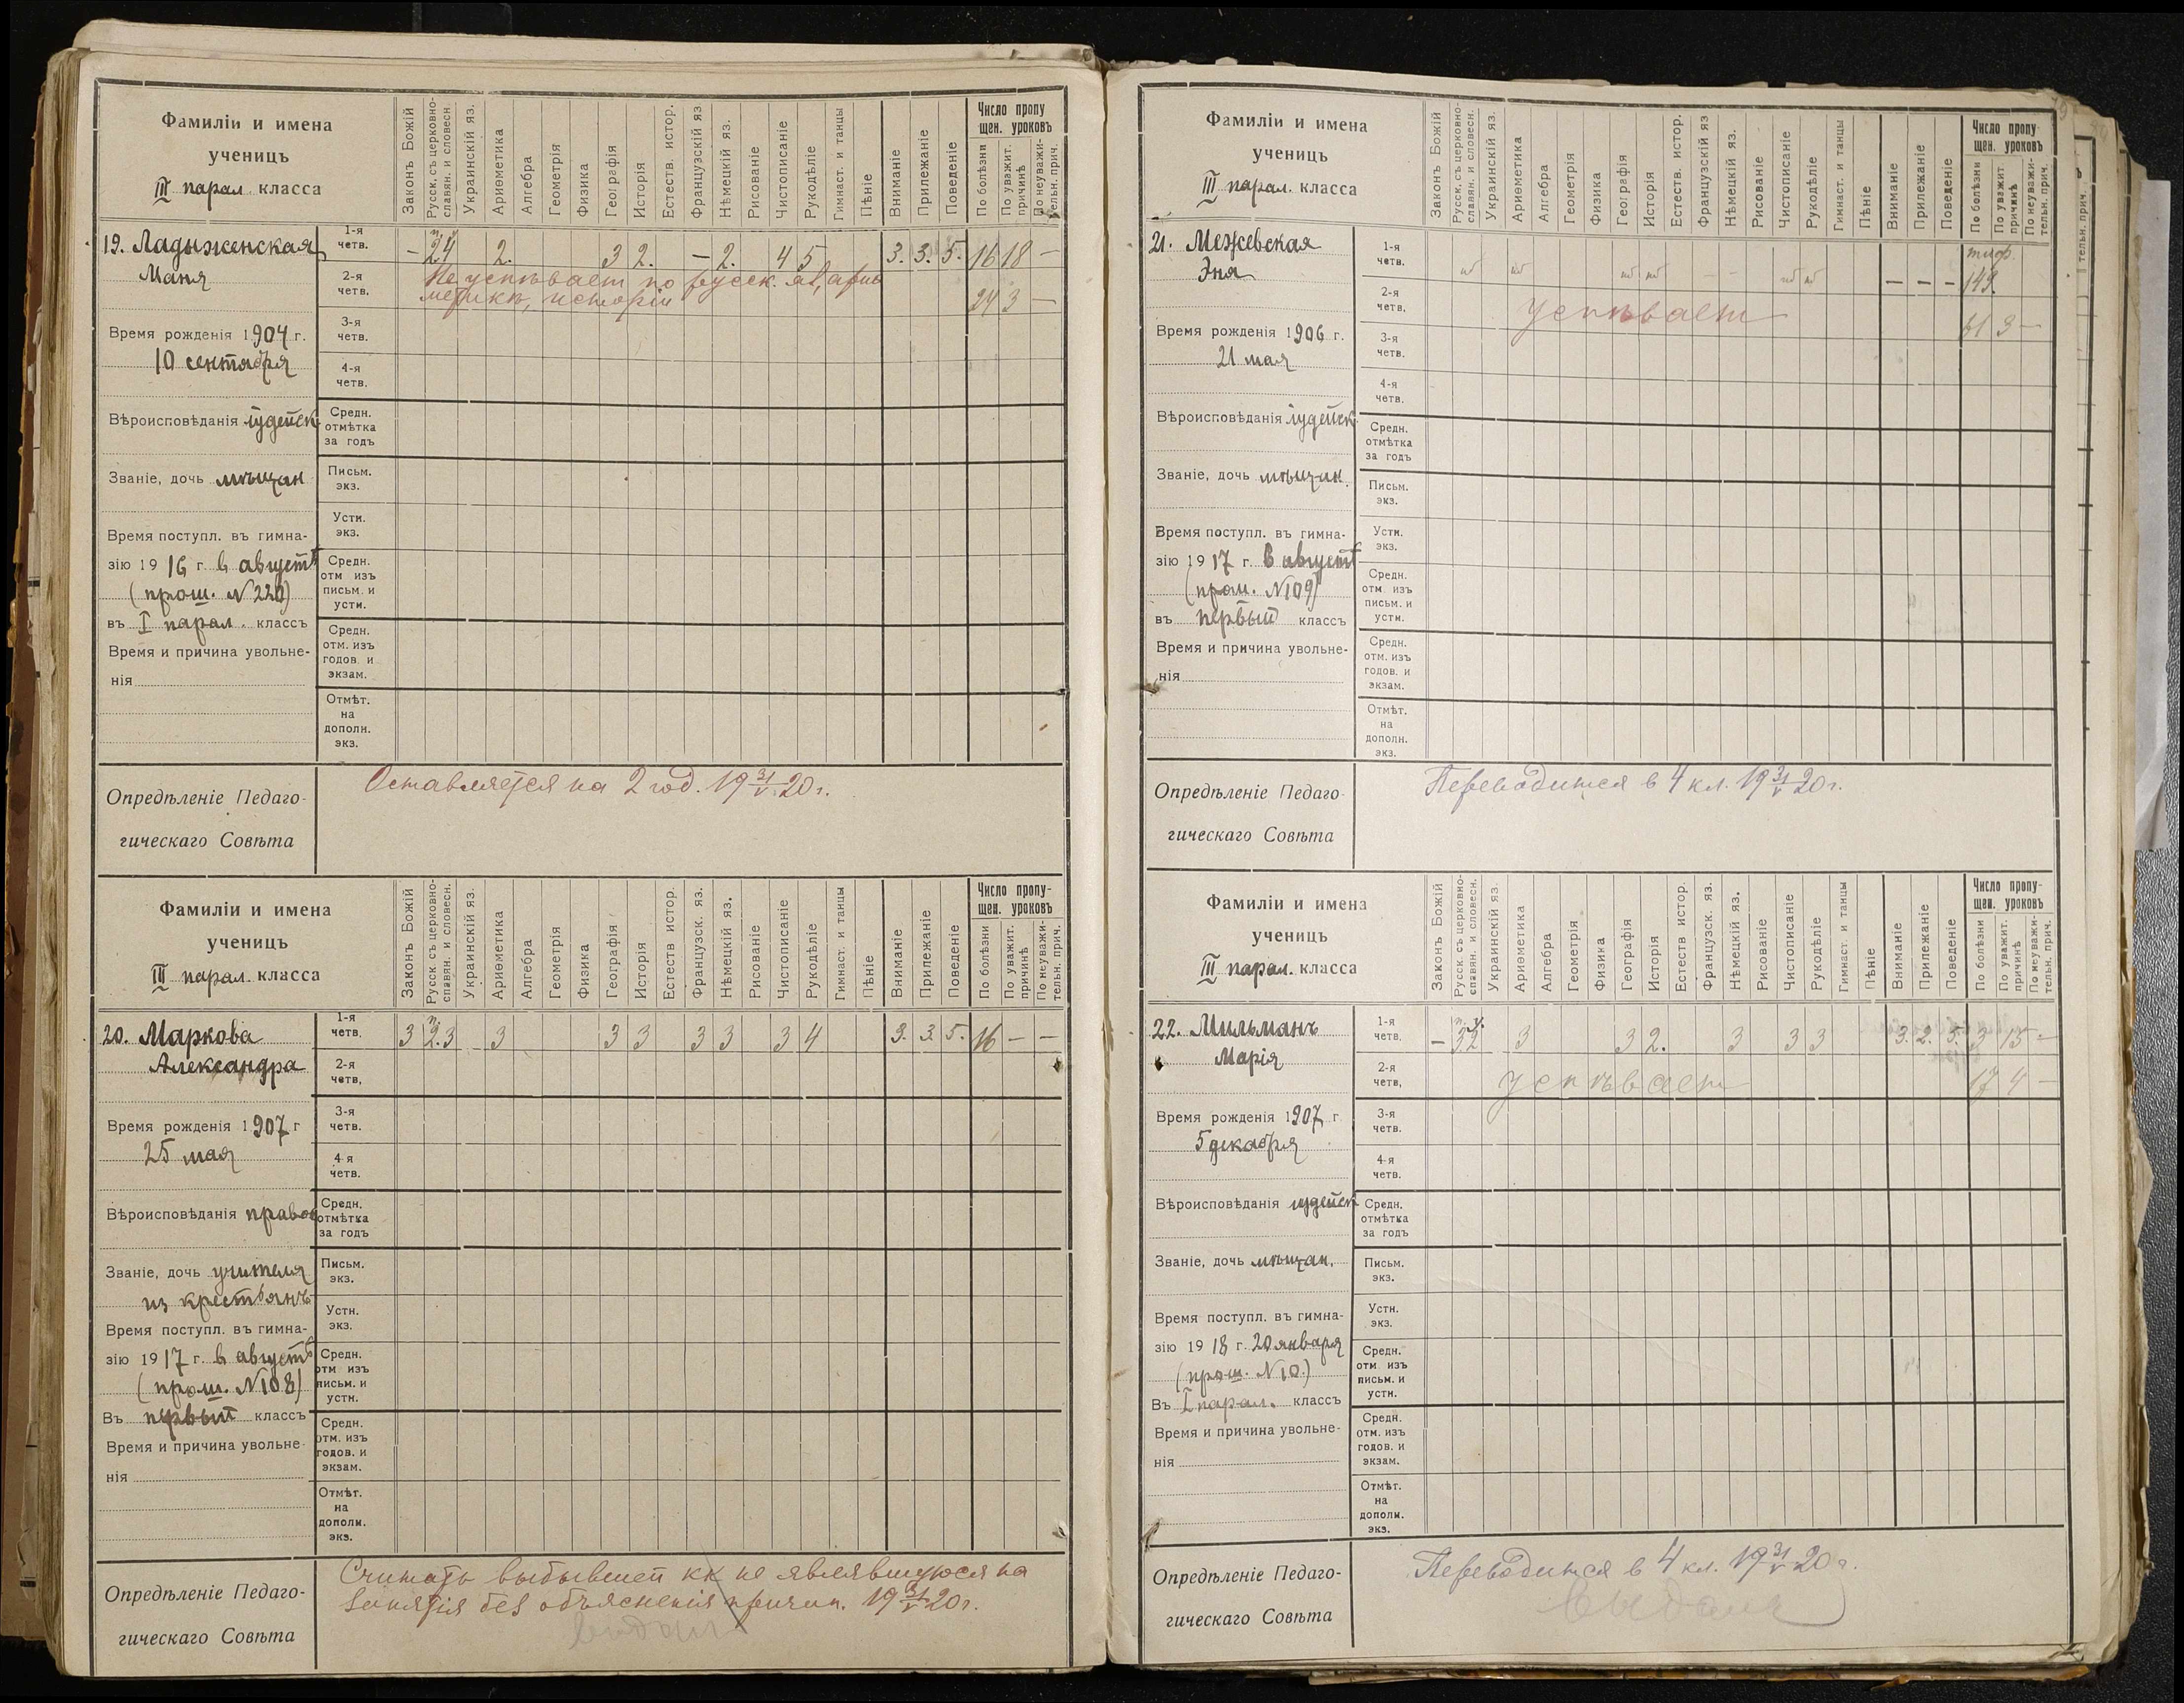 Фамиліи и имена
ученицъ
III парал. класса
Законъ Божій
Русск. съ церковно-
славян. и словесн.
Украинскій яз.
Ариѳметика
Алгебра
Геометрія
Физика
Географія
Исторія
Естеств. истор.
Французскій яз
Нѣмецкій яз.
Рисованіе
Чистописаніе
Рукодѣліе
Гимнаст. и танцы
Пѣніе
Вниманіе
Прилежаніе
Поведеніе
Число пропу
щен. уроковъ
По болѣзни
По уважит.
причинѣ
По неуважи-
тельн. прич.
19. Ладыженская
Маня
1-я
четв.
– 2 4 2. 3 2. – 2. 4 5 3. 3. 5. 16 18 –
2-я
четв.
Не успѣваетъ по русск. яз, ариѳ
метикѣ, исторіи
24 3 –
3-я
четв.
4-я
четв.
Время рожденія 1904 г.
10 сентября
Вѣроисповѣданія іудейск
Средн.
отмѣтка
за годъ
Званіе, дочь мѣщан
Письм.
экз.
Устн.
экз.
Время поступл. въ гимна-
зію 1916 г в августѣ
(прош. N 220)
въ I парал. классъ
Средн.
отм изъ
письм. и
устн.
Время и причина увольне-
нія
Средн.
отм. изъ
годов. и
экзам.
Отмѣт.
на
дополн.
экз.
Опредѣленіе Педаго-
гическаго Совѣта
Оставляется на 2 год. 19 31/V 20 г.
Фамиліи и имена
ученицъ
III парал. класса
Законъ Божій
Русск съ церковно-
славян. и словесн.
Украинскій яз.
Ариѳметика
Алгебра
Геометрія
Физика
Географія
Исторія
Естеств истор.
Французск. яз.
Нѣмецкій яз.
Рисованіе
Чистописаніе
Рукодѣліе
Гимнаст. и танцы
Пѣніе
Вниманіе
Прилежаніе
Поведеніе
Число пропу-
щен. уроковъ
По болѣзни
По уважит.
причинѣ
По неуважи-
тельн. прич.
20. Маркова
Александра
1-я
четв.
3 2. 3 3 3 3 3 3 3 4 3. 3 5. 16 – –
2-я
четв,
3-я
четв.
4-я
четв.
Время рожденія 1907 г
25 мая
Вѣроисповѣданія правос
Средн.
отмѣтка
за годъ
Званіе, дочь учителя
из крестьянъ
Письм.
экз.
Устн.
экз.
Время поступл. въ гимна-
зію 1917 г. в августѣ
(прош. N 108)
Въ первый классъ
Средн.
отм изъ
письм. и
устн.
Время и причина увольне-
нія
Средн.
отм. изъ
годов. и
экзам.
Отмѣт.
на
дополн.
экз.
Опредѣленіе Педаго-
гическаго Совѣта
Считать выбывшей кк не являвшуюся на
занятія без объясненія причин. 19 31/V 20 г.
Фамиліи и имена
ученицъ
III парал. класса
Законъ Божій
Русск, съ церковно-
славян. и словесн.
Украинскій яз.
Ариѳметика
Алгебра
Геометрія
Физика
Географія
Исторія
Естеств. истор.
Французскій яз
Нѣмецкій яз.
Рисованіе
Чистописаніе
Рукодѣліе
Гимнаст. и танцы
Пѣніе
Вниманіе
Прилежаніе
Поведеніе
Число пропу-
щен. уроковъ
По болѣзни
По уважит.
причинѣ
По неуважи-
тельн. прич.
тельн. прич.
21. Межевская
Эня
1-я
четв.
нб нб нб нб – – нб нб – – – тиф. 149.
2-я
четв,
Успѣвает
61 9 –
3-я
четв.
4-я
четв.
Время рожденія 1906 г.
21 мая
Вѣроисповѣданія іудейск.
Средн.
отмѣтка
за годъ
Званіе, дочь мѣщан.
Письм.
экз.
Устн.
экз.
Время поступл. въ гимна-
зію 1917 г. в августѣ
(прош. N109)
въ первый классъ
Средн.
отм изъ
письм. и
устн.
Время и причина увольне-
нія
Средн.
отм. изъ
годов. и
экзам.
Отмѣт.
на
дополн.
экз.
Опредѣленіе Педаго
гическаго Совѣта
Переводится в 4 кл. 19 31/V 20 г.
Фамиліи и имена
ученицъ
III парал. класса
Законъ Божій
Русск. съ церковно-
славян. и словесн.
Украинскій яз.
Ариѳметика
Алгебра
Геометрія
Физика
Географія
Исторія
Естеств истор.
Французск. яз.
Нѣмецкій яз.
Рисованіе
Чистописаніе
Рукодѣліе
Гимнаст. и танцы
Пѣніе
Вниманіе
Прилежаніе
Поведеніе
Число пропу-
щен. уроковъ
По болѣзни
По уважит.
причинѣ
По неуважи-
тельн. прич.
22. Мильманъ
Марія
1-я
четв,
– 3 2 3 3 2. 3 3 3 3. 2. 5. 3 15 –
2-я
четв,
Успѣвает
17 4 –
3-я
четв.
4-я
четв.
Время рожденія 1907 г
5 декабря
Вѣроисповѣданія іудейск
Средн.
отмѣтка
за годъ
Званіе, дочь мѣщан.
Письм.
экз.
Устн.
экз.
Время поступл. въ гимна-
зію 1918 г. 20 января
(прош. N10.)
Въ I парал. классъ
Средн.
отм изъ
письм. и
устн.
Время и причина увольне-
нія
Средн.
отм. изъ
годов. и
экзам.
Отмѣт.
на
дополн.
экз.
Опредѣленіе Педаго-
гическаго Совѣта
Переводится в 4 кл. 19 31/V 20 г.